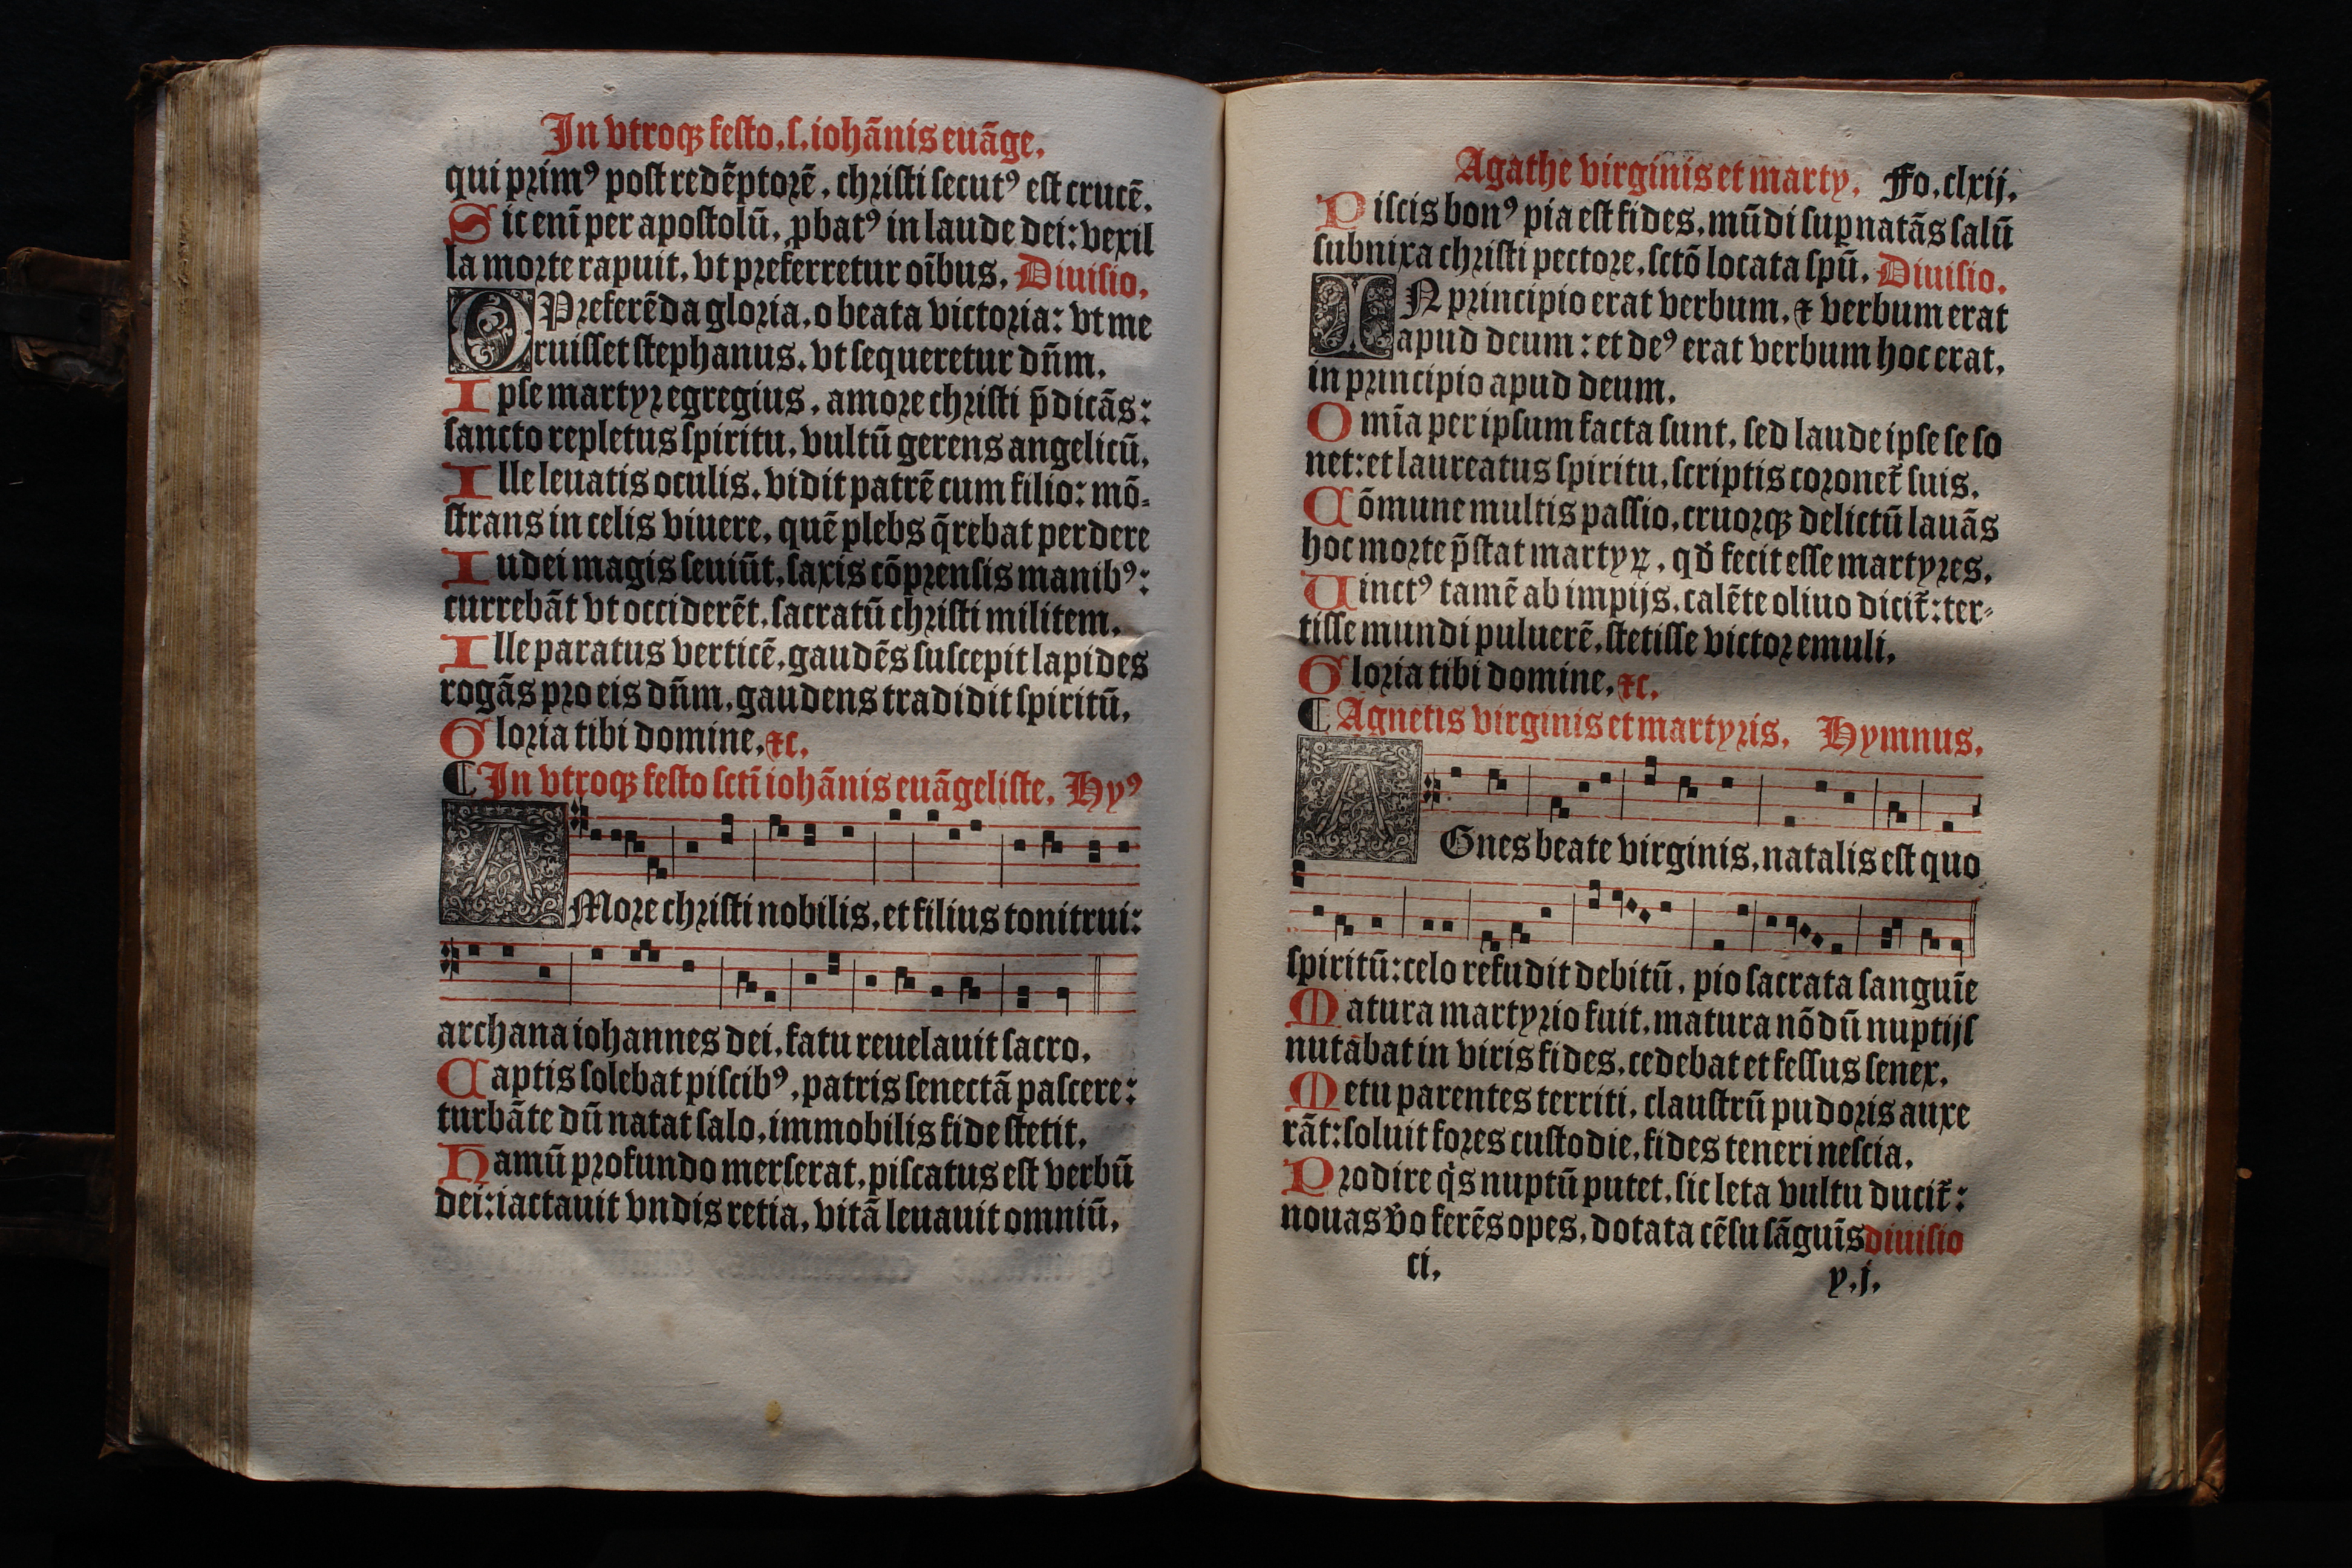 In vtroqꝫ festo. s. iohānis euāge.
qui primꝰ post redēptorē, christi secutꝰ est crucē.
Sic enī per apostolū, ꝓbatꝰ in laude dei: vexil
la morte rapuit, vt preferretur oībus. Diuisio.
O Preferēda gloria, o beata victoria: vt me
ruisset stephanus, vt sequeretur dn̄m.
Ipse martyr egregius, amore christi p̄dicās:
sancto repletus spiritu, vultū gerens angelicū.
Ille leuatis oculis, vidit patrē cum filio: mō-
strans in celis viuere, quē plebs q̄rebat perdere
Iudei magis seuiūt, saxis cōprensis manibꝰ:
currebāt vt occiderēt, sacratū christi militem.
Ille paratus verticē, gaudēs suscepit lapides
rogās pro eis dn̄m, gaudens tradidit spiritū.
Gloria tibi domine, ⁊c.
¶ In vtroqꝫ festo sctī iohānis euāgeliste. Hyꝰ
AMore christi nobilis, et filius tonitrui:
archana iohannes dei, fatu reuelauit sacro.
Captis solebat piscibꝰ, patris senectā pascere:
turbāte dū natat salo, immobilis fide stetit.
Hamū profundo merserat, piscatus est verbū
dei: iactauit vndis retia, vitā leuauit omniū.
Agathe virginis et marty. Fo. clxij.
Piscis bonꝰ pia est fides, mūdi suꝑnatās salū
subnixa christi pectore, sctō locata spū. Diuisio.
IN principio erat verbum, ⁊ verbum erat
apud deum: et deꝰ erat verbum hoc erat,
in principio apud deum.
Omīa per ipsum facta sunt, sed laude ipse se so
net: et laureatus spiritu, scriptis coronet̄ suis.
Cōmune multis passio, cruorqꝫ delictū lauās
hoc morte p̄stat martyꝝ, qđ fecit esse martyres.
Uinctꝰ tamē ab impijs, calēte oliuo dicit̄: ter-
tisse mundi puluerē, stetisse victor emuli.
Gloria tibi domine, ⁊c.
¶ Agnetis virginis et martyris. Hymnus.
AGnes beate virginis, natalis est quo
spiritū: celo refudit debitū, pio sacrata sanguīe
Matura martyrio fuit, matura nōdū nuptijs
nutabat in viris fides, cedebat et fessus senex.
Metu parentes territi, claustrū pudoris auxe
rāt: soluit fores custodie, fides teneri nescia.
Prodire qͥs nuptū putet, sic leta vultu ducit̄:
nouas v̄o ferēs opes, dotata cēsu sāguīs diuisio
ci. y. j.